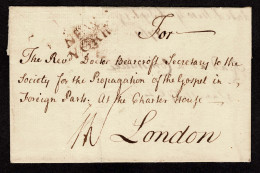 NEW
YORK
For
The Revd Doctor Bearcroft Secretary to the
Society for the Propagation of the Gospel in
Foreign Parts. At the Charter House
London